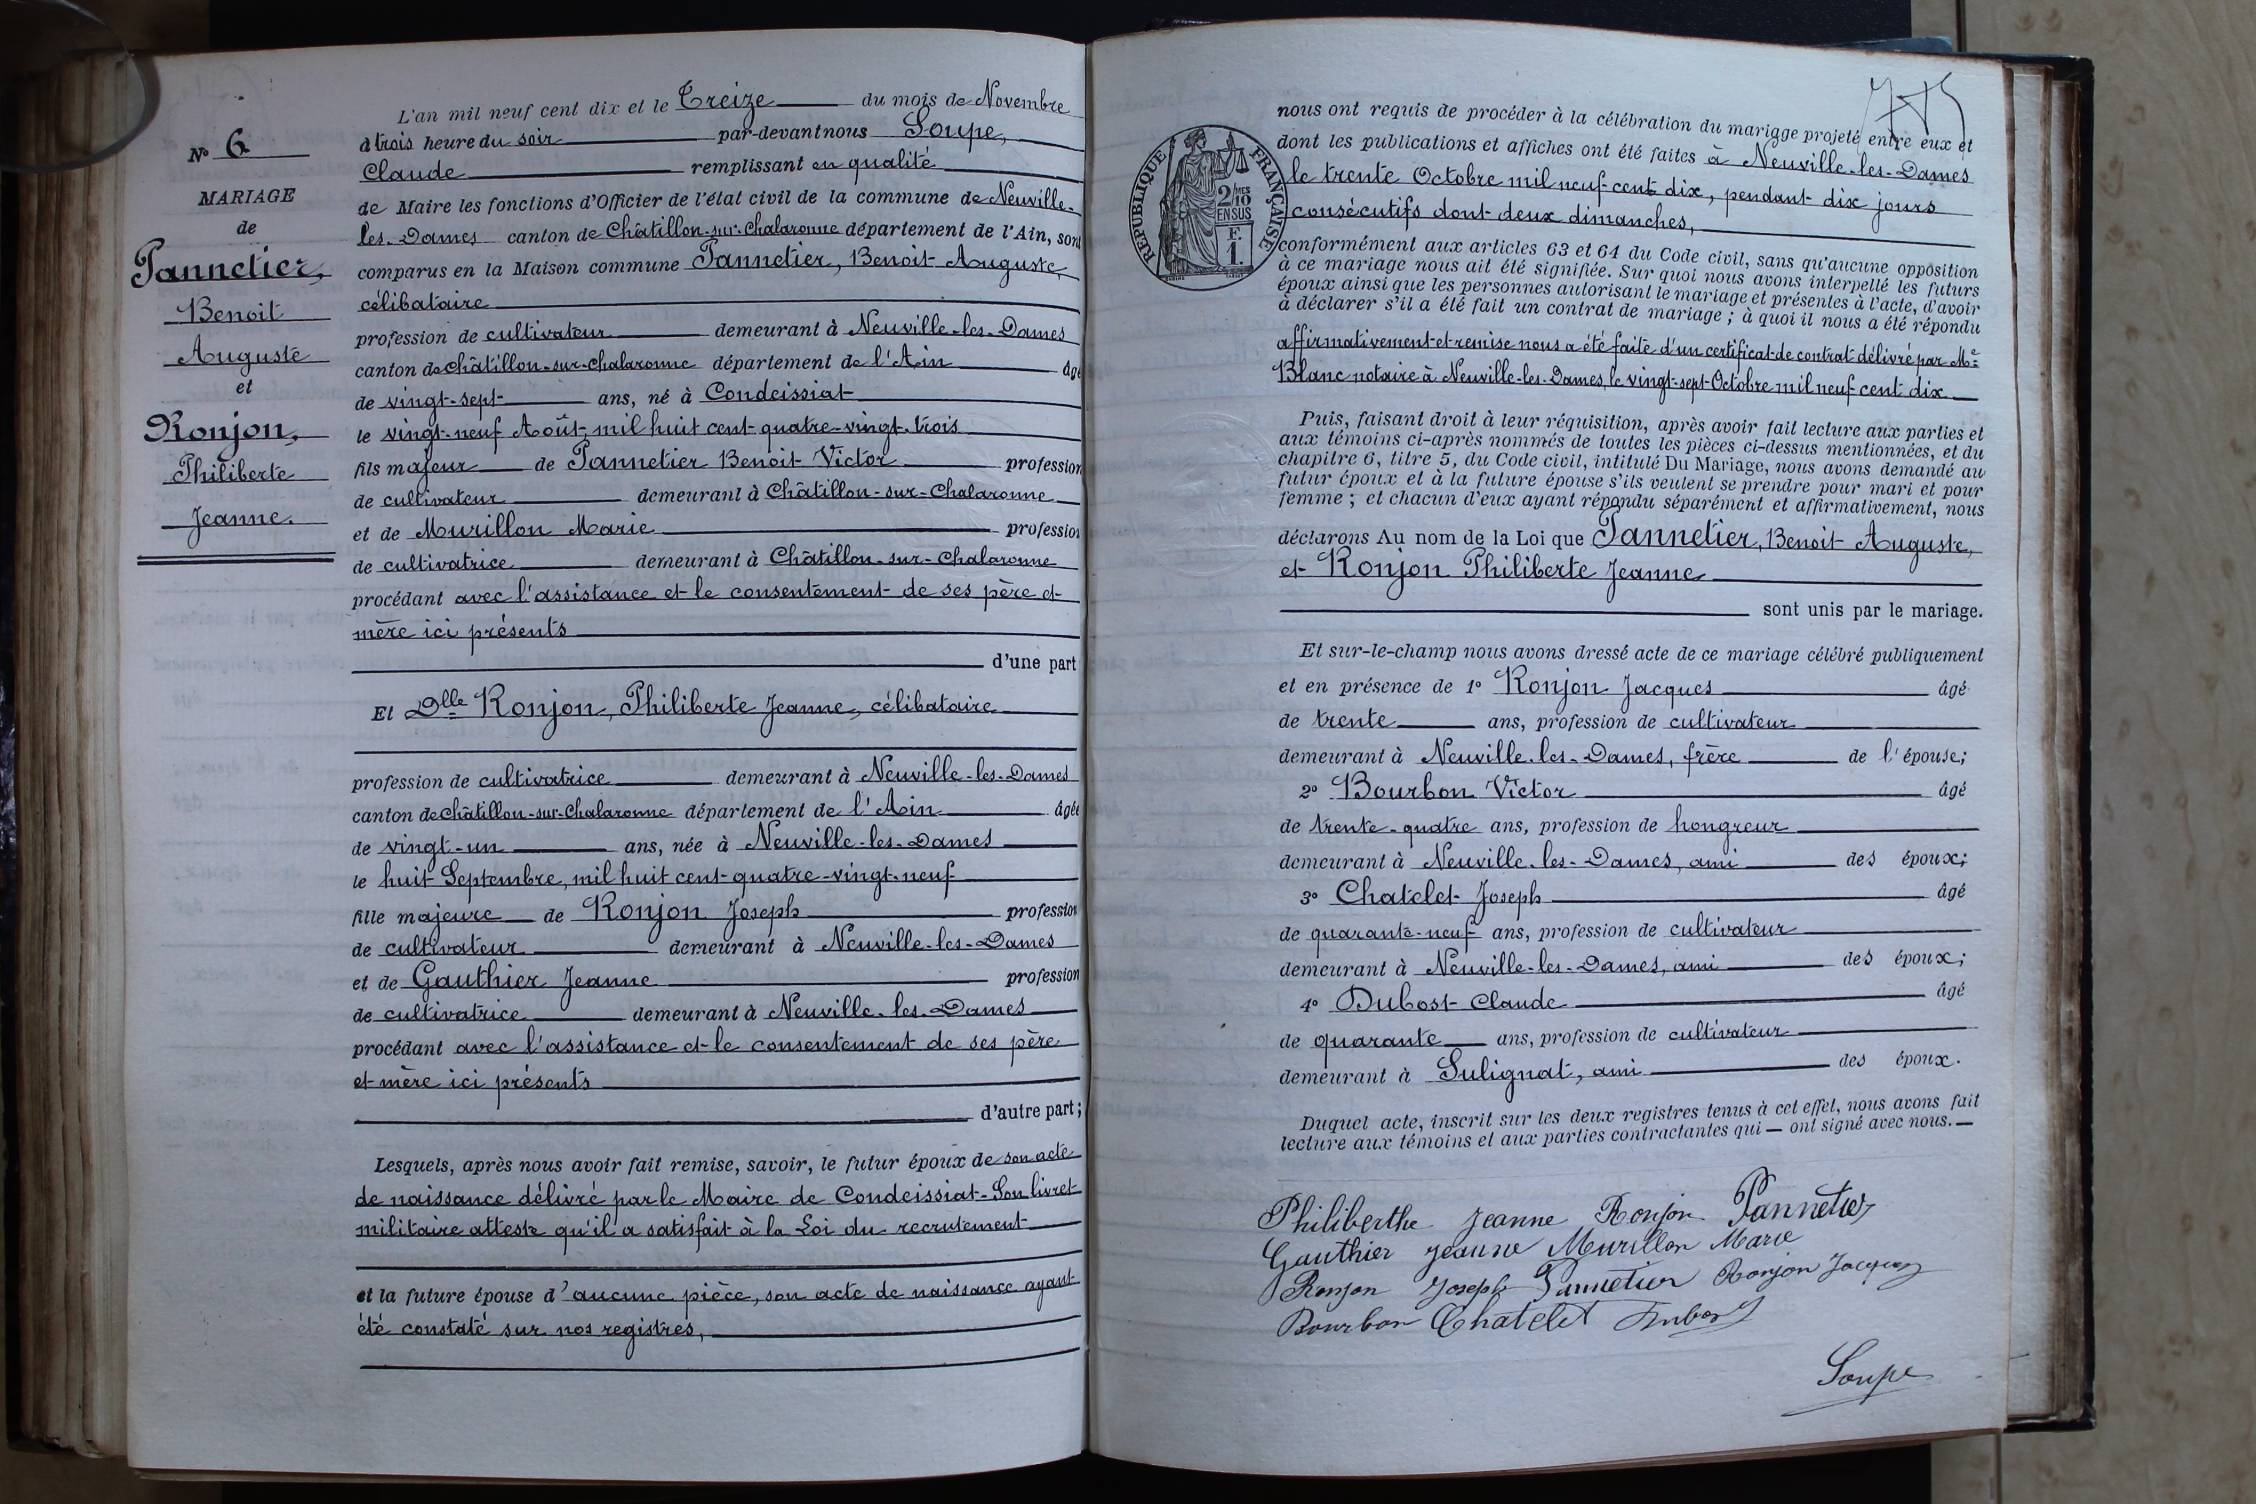 N° 6
MARIAGE
de
Pannetier,
Benoit
Auguste
et
Ronjon,
Philiberte
Jeanne.
L'an mil neuf cent dix et le Treize du mois de Novembre
à trois heure du soir par-devant nous Soupe,
Claude remplissant en qualité
de Maire les fonctions d'Officier de l'état civil de la commune de Neuville-
les-Dames canton de Châtillon-sur-Chalaronne département de l'Ain, sont
comparus en la Maison commune Pannetier, Benoit Auguste,
célibataire
profession de cultivateur demeurant à Neuville-les-Dames
canton de Châtillon-sur-Chalaronne département de l'Ain âgé
de vingt-sept ans, né à Condeissiat
le vingt-neuf Août mil huit cent quatre-vingt-trois
fils majeur de Pannetier Benoit Victor profession
de cultivateur demeurant à Châtillon-sur-Chalaronne
et de Murillon Marie profession
de cultivatrice demeurant à Châtillon-sur-Chalaronne
procédant avec l'assistance et le consentement de ses père et
mère ici présents
d'une part
Et Dlle Ronjon, Philiberte Jeanne, célibataire
profession de cultivatrice demeurant à Neuville-les-Dames
canton de Châtillon-sur-Chalaronne département de l'Ain âgée
de vingt-un ans, née à Neuville-les-Dames
le huit Septembre, mil huit cent quatre-vingt-neuf
fille majeure de Ronjon Joseph profession
de cultivateur demeurant à Neuville-les-Dames
et de Gauthier Jeanne profession
de cultivatrice demeurant à Neuville-les-Dames
procédant avec l'assistance et le consentement de ses père
et mère ici présents
d'autre part;
Lesquels, après nous avoir fait remise, savoir, le futur époux de son acte
de naissance délivré par le Maire de Condeissiat-Son livret
militaire atteste qu'il a satisfait à la Loi du recrutement
et la future épouse d'aucune pièce, son acte de naissance ayant
été constaté sur nos registres,
RÉPUBLIQUE FRANÇAISE
2/MES
10
EN SUS
F.
1.
nous ont requis de procéder à la célébration du mariage projeté entre eux et
dont les publications et affiches ont été faites à Neuville-les-Dames
le trente Octobre mil neuf cent dix, pendant dix jours
consécutifs dont deux dimanches,
conformément aux articles 63 et 64 du Code civil, sans qu'aucune opposition
à ce mariage nous ait été signifiée. Sur quoi nous avons interpellé les futurs
époux ainsi que les personnes autorisant le mariage et présentes à l'acte, d'avoir
à déclarer s'il a été fait un contrat de mariage; à quoi il nous a été répondu
affirmativement et remise nous a été faite d'un certificat de contrat délivré par Me
Blanc notaire à Neuville-les-Dames, le vingt-sept Octobre mil neuf cent dix
Puis, faisant droit à leur réquisition, après avoir fait lecture aux parties et
aux témoins ci-après nommés de toutes les pièces ci-dessus mentionnées, et du
chapitre 6, titre 5, du Code civil, intitulé Du Mariage, nous avons demandé au
futur époux et à la future épouse s'ils veulent se prendre pour mari et pour
femme; et chacun d'eux ayant répondu séparément et affirmativement, nous
déclarons Au nom de la Loi que Pannetier, Benoit Auguste,
et Ronjon Philiberte Jeanne
sont unis par le mariage.
Et sur-le-champ nous avons dressé acte de ce mariage célébré publiquement
et en présence de 1° Ronjon Jacques âgé
de trente ans, profession de cultivateur
demeurant à Neuville-les-Dames, frère de l'épouse;
2° Bourbon Victor âgé
de trente-quatre ans, profession de hongreur
demeurant à Neuville-les-Dames, ami des époux;
3° Chatelet Joseph âgé
de quarante-neuf ans, profession de cultivateur
demeurant à Neuville-les-Dames, ami des époux;
4° Dubost Claude âgé
de quarante ans, profession de cultivateur
demeurant à Sulignat, ami des époux.
Duquel acte, inscrit sur les deux registres tenus à cet effet, nous avons fait
lecture aux témoins et aux parties contractantes qui — ont signé avec nous. —
Philiberthe Jeanne Ronjon Pannetier
Gauthier Jeanne Murillon Marie
Ronjon Joseph Pannetier Ronjon Jacques
Bourbon Chatelet Dubost
Soupe